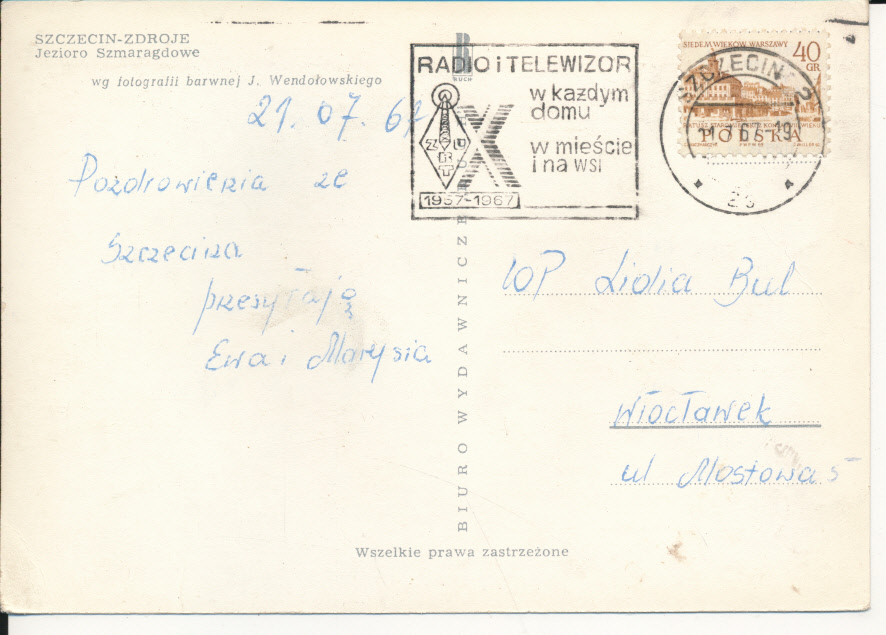 SZCZECIN-ZDROJE
Jezioro Szmaragdowe
wg fotografii barwnej J. Wendołowskiego
21.07.67
Pozdrowienia ze
Szczecina
przesyłają
Ewa i Marysia
RUCH
RADIO i TELEWIZOR
w każdym
domu
w mieście
i na wsi
ZURT
X
1957-1967
SIEDEM WIEKÓW WARSZAWY
40
GR
POLSKA
SZCZECIN 2
BIURO WYDAWNICZE
WP Lidia Bul
Włocławek
ul Mostowa 5
Wszelkie prawa zastrzeżone